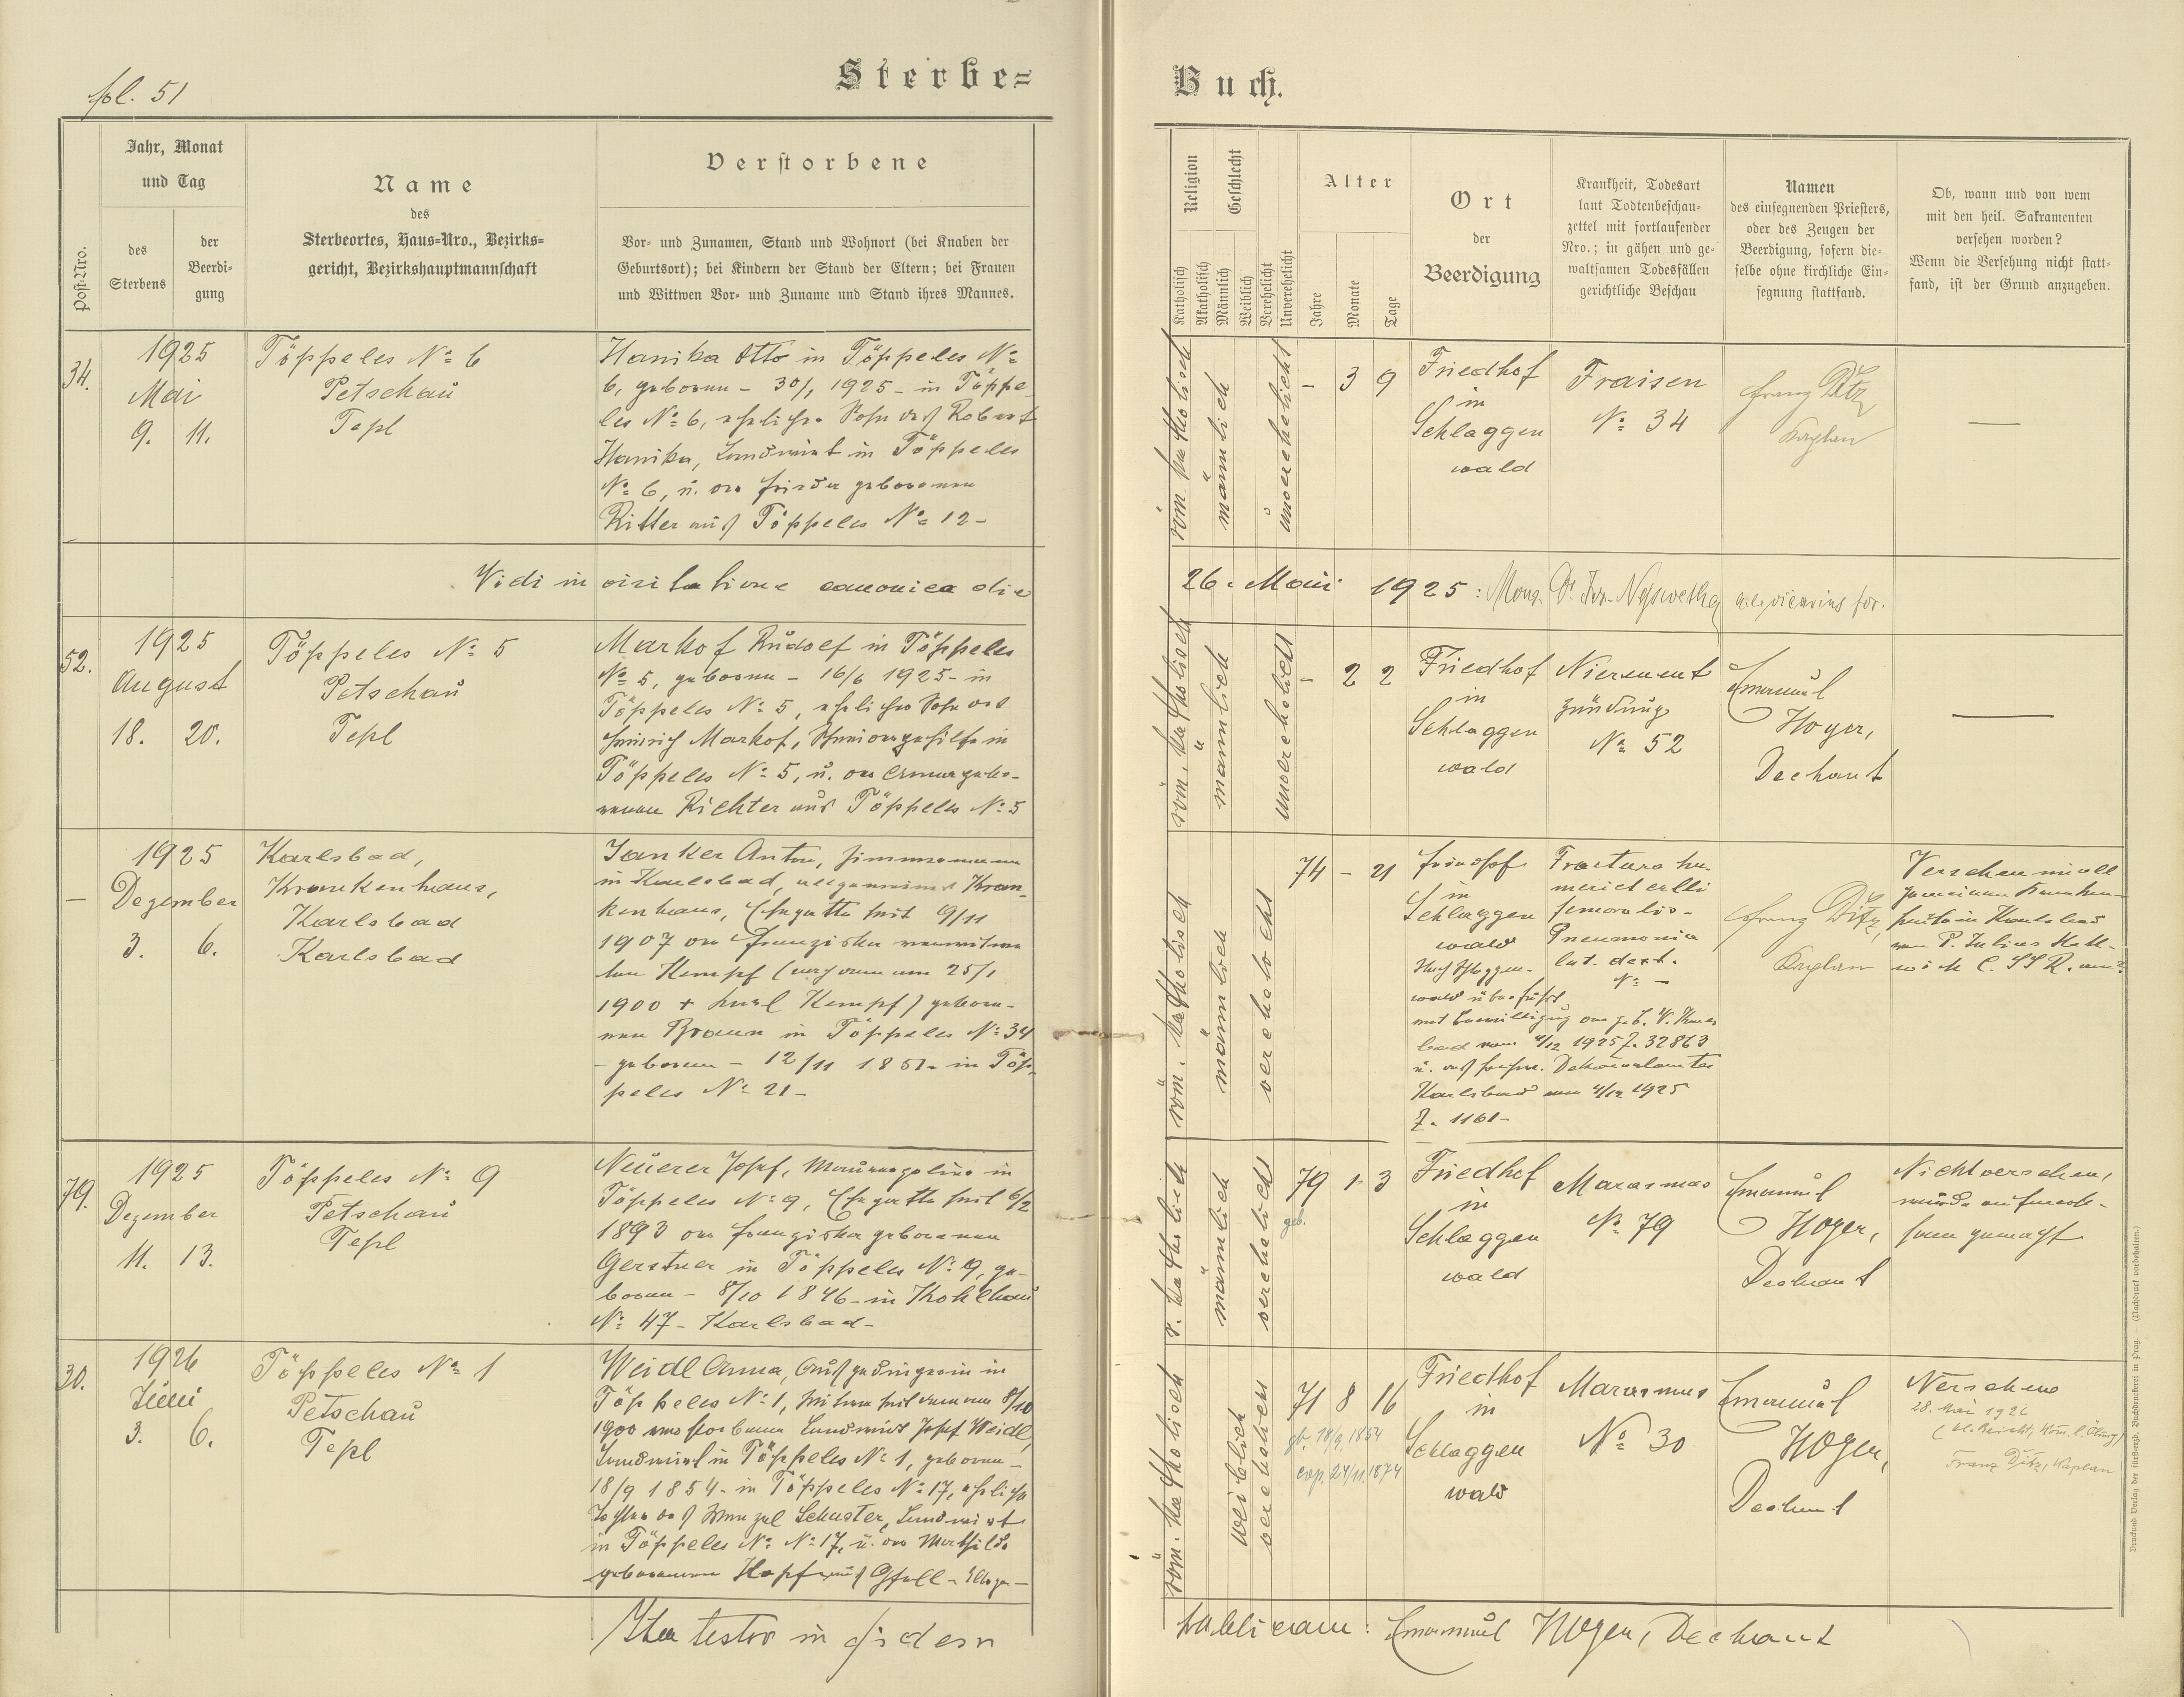 fol. 51
Sterbe=
Buch.
Post-Nro.
Jahr, Monat
und Tag
des
Sterbens
der
Beerdi-
gung
Name
des
Sterbeortes, Haus=Nro., Bezirks=
gericht, Bezirkshauptmannschaft
Verstorbene
Vor- und Zunamen, Stand und Wohnort (bei Knaben der
Geburtsort); bei Kindern der Stand der Eltern; bei Frauen
und Wittwen Vor- und Zuname und Stand ihres Mannes.
Religion
Katholisch
Akatholisch
Geschlecht
Männlich
Weiblich
Verehelicht
Unverehelicht
Alter
Jahre
Monate
Tage
Ort
der
Beerdigung
Krankheit, Todesart
laut Todtenbeschau-
zettel mit fortlaufender
Nro.; in gähen und ge-
waltsamen Todesfällen
gerichtliche Beschau
Namen
des einsegnenden Priesters,
oder des Zeugen der
Beerdigung, sofern die-
selbe ohne kirchliche Ein-
segnung stattfand.
Ob, wann und von wem
mit den heil. Sakramenten
versehen worden?
Wenn die Versehung nicht statt-
fand, ist der Grund anzugeben.
34.
1925
Mai
9. 11.
Töppeles No 6
Petschau
Tepl
Hanika Otto in Töppeles No
6, geboren - 30/1 1925 - in Töppe
les No 6, ehelicher Sohn des Robert
Hanika, Landwirt in Töppeles
No 6, u. der Frieda geborenen
Ritter aus Töppeles No 12 -
röm. katholisch
männlich
unverehelicht
- 3 9
Friedhof
in
Schlaggen
wald
Fraisen
No 34
Franz Ditz,
Kaplan
—
Vidi in visitatione canonica die
26. Mai 1925:
52.
1925
August
18. 20.
Töppeles No 5
Petschau
Tepl
Markof Rudolf in Töppeles
No 5, geboren - 16/6 1925 - in
Töppeles No 5, ehelicher Sohn des
Heinrich Markof, in
Töppeles No 5, u. der Emma gebo-
renen Richter aus Töppeles No 5
röm. katholisch
männlich
unverehelicht
- 2 2
Friedhof
in
Schlaggen
wald
Nierenent
zündung
No 52
Emanuel
Hoyer,
Dechant
—
—
1925
Dezember
3. 6.
Karlsbad,
Krankenhaus,
Karlsbad
Karlsbad
Janker Anton, Zimmermann
in Karlsbad, allgemeines Kran-
kenhaus, Ehegatte seit 9/11
1907 der Franziska verwitwe
ten Kempf (nach dem am 25/1
1900 + Kempf) gebore-
nen Braun in Töppeles No 34
- geboren - 12/11 1851 - in Töp-
peles No 21 -
röm. katholisch
männlich
verehelicht
74 - 21
Friedhof
in
Schlaggen
wald
Nach Schlaggen-
wald überführt
mit Bewilligung der
bad vom 4/12 1925 Z. 32863
u. des Dekanalamtes
Karlsbad vom 4/12 1925
Z. 1161 -
Fractura hu-
meri et colli
femoralis -
Pneumonia
lat. dext.
No -
Franz Ditz,
Kaplan
Versehen im all
gemeinen Kranken-
hause in Karlsbad
von P. Julius
C. SS R.
79.
1925
Dezember
11. 13.
Töppeles No 9
Petschau
Tepl
Neuerer Josef, Maurerpolier in
Töppeles No 9, Ehegatte seit 6/2
1893 der Franziska geborenen
Gerstner in Töppeles No 9, ge-
boren - 8/10 1846 - in Kohlhau
No 47 - Karlsbad -
r. katholisch
männlich
verehelicht
79 1 3
geb.
Friedhof
in
Schlaggen
wald
Marasmus
No 79
Emanuel
Hoyer,
Dechant
Nicht versehen,
wurde aufmerk-
sam gemacht
30.
1926
Juni
3. 6.
Töppeles No 1
Petschau
Tepl
Weidl Anna, Ausgedingerin in
Töppeles No 1, Witwe seit dem am 8/10
1900 verstorbenen Landwirt Josef Weidl,
Landwirt in Töppeles No 1, geboren -
18/9 1854 - in Töppeles No 17, eheliche
Tochter des Wenzel Schuster, Landwirt
in Töppeles No No 17, u. der Mathilde
geborenen Hopf aus Gfell -
röm. katholisch
weiblich
verehelicht
71 8 16
gb. 18/9 1854
cop. 24/11 1874
Friedhof
in
Schlaggen
wald
Marasmus
No 30
Emanuel
Hoyer,
Dechant
Versehen
28. Mai 1926
(hl. Beicht, Kom. l. Ölung)
Franz Ditz, Kaplan
Ita testor in fidem
publicam: Emanuel Hoyer, Dechant
Druck und Verlag der fürsterzb. Buchdruckerei in Prag. — (Nachdruck vorbehalten.)